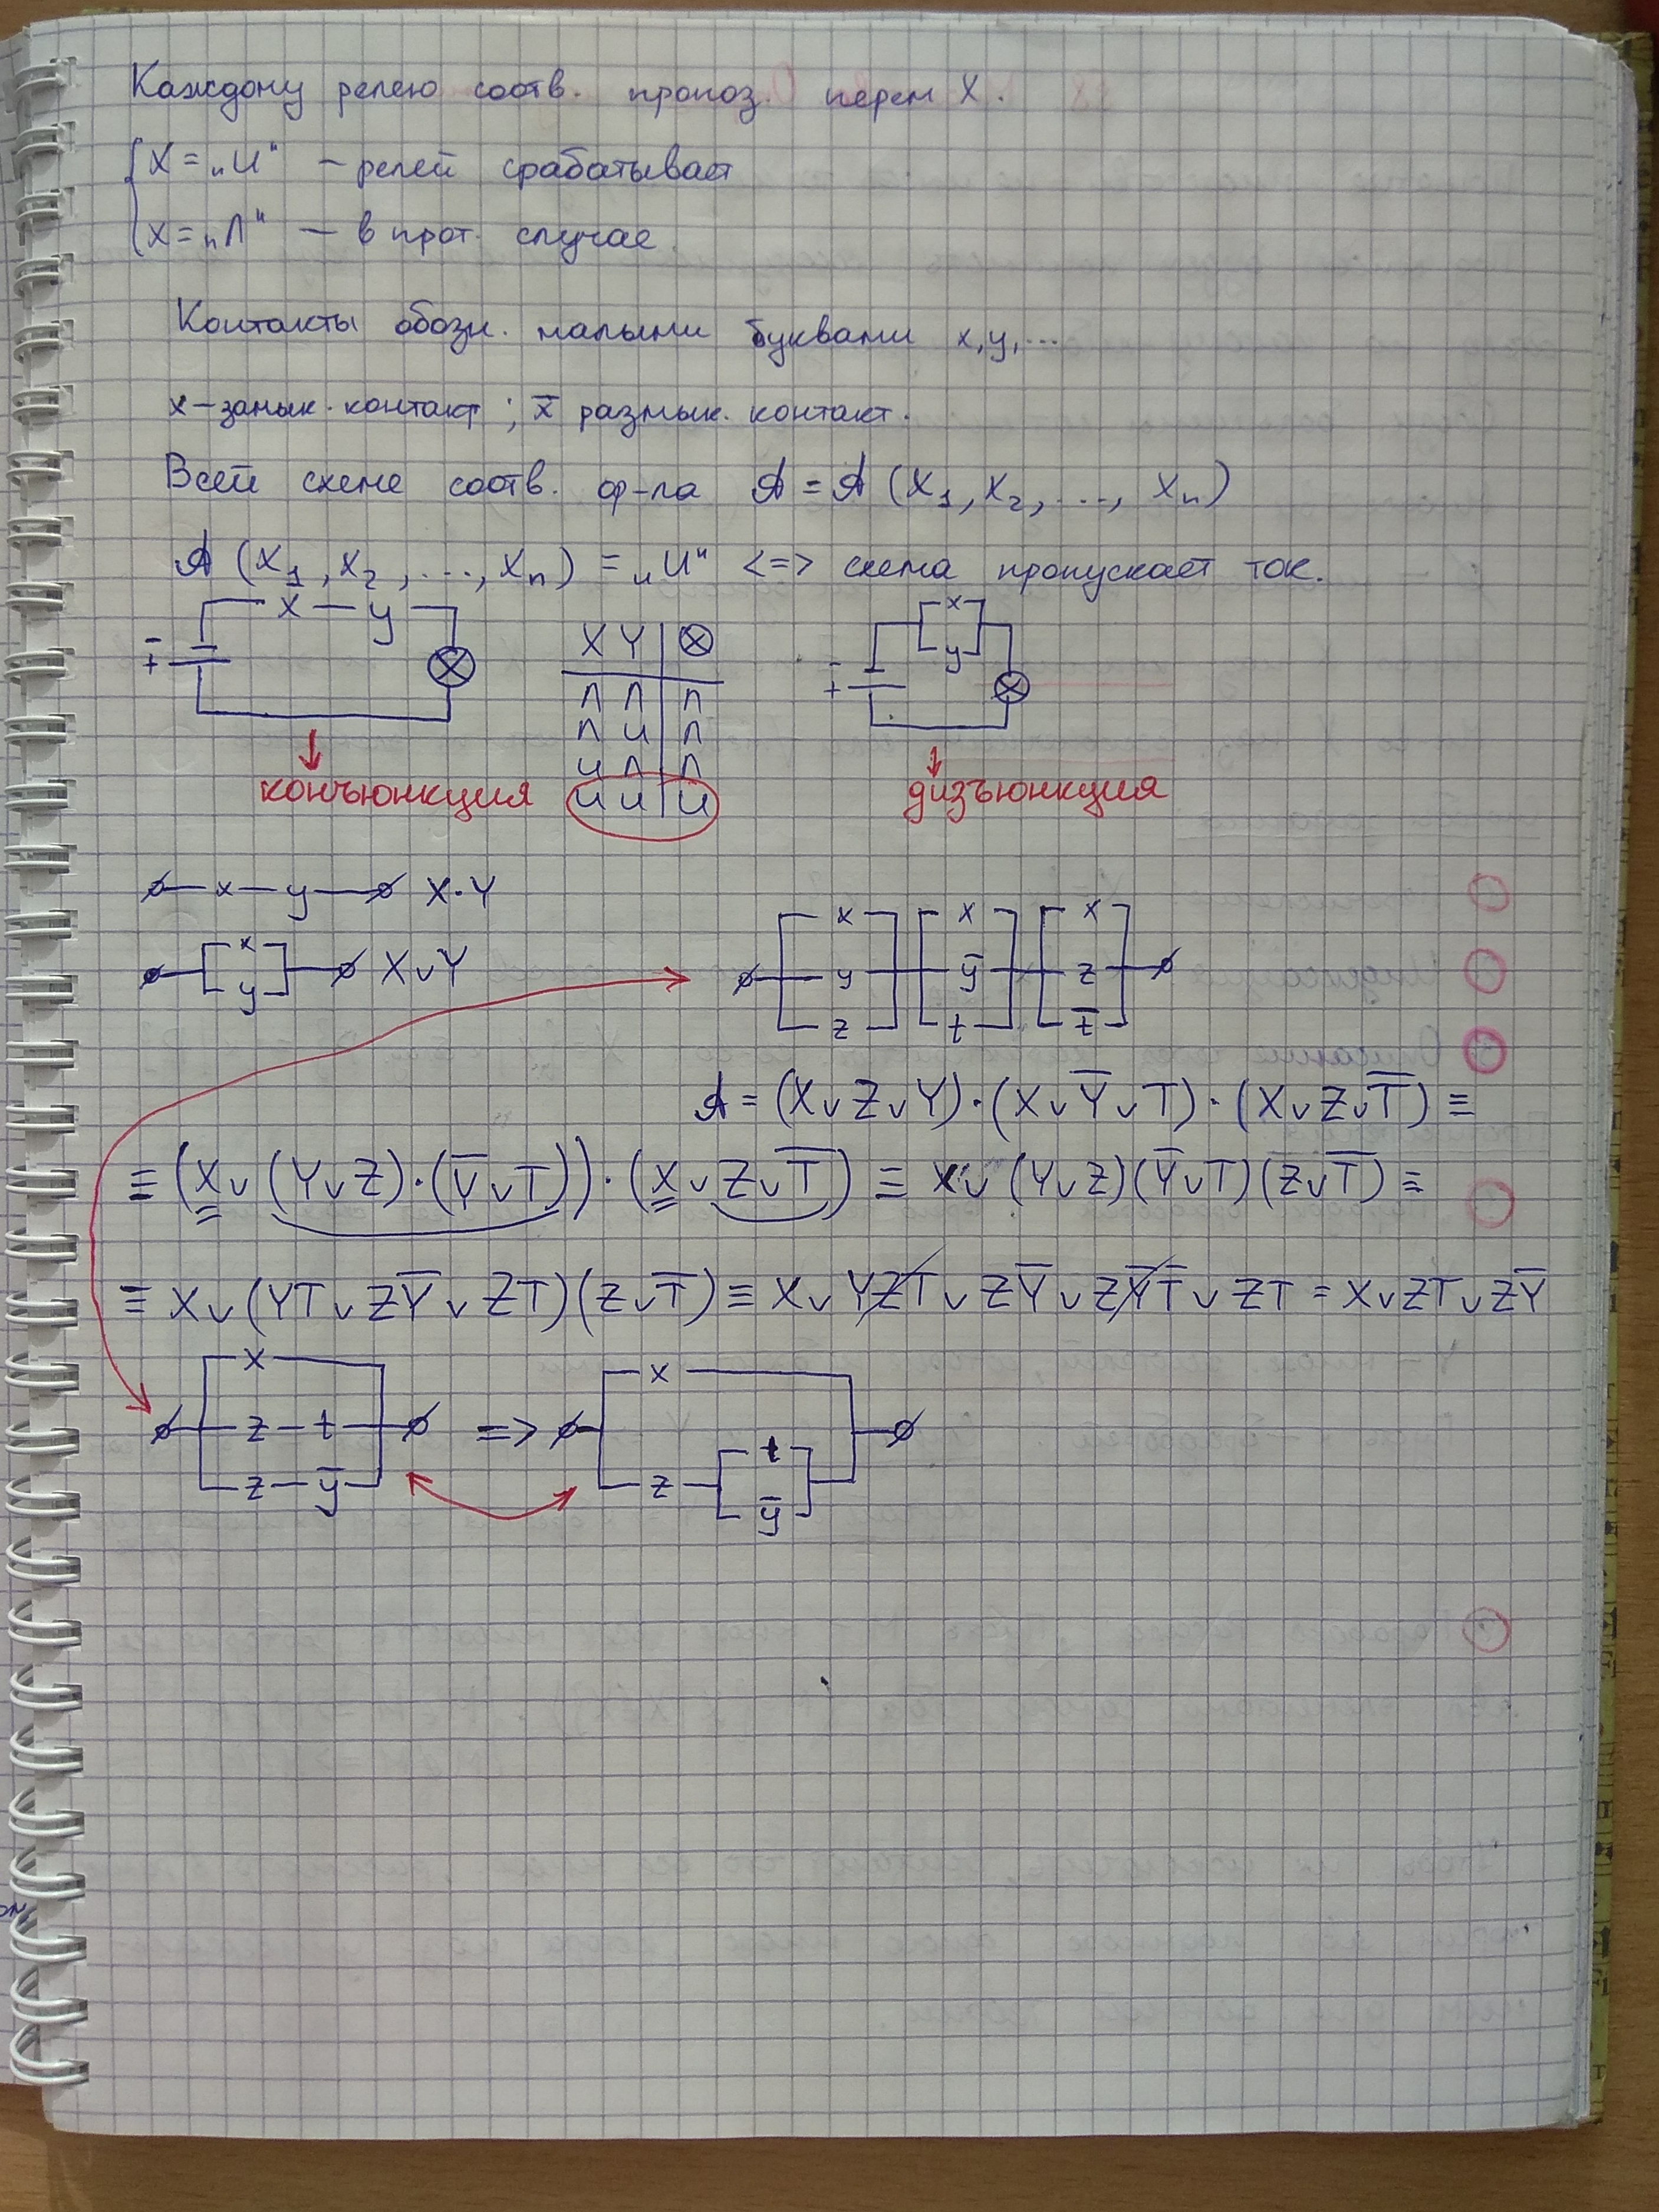 Каждому релею соотв. пропоз. перем X.
X = „И" – релей срабатывает
X = „Л" – в прот. случае.
Контакты обозн. малыми буквами x, y, ...
x – замык. контакт; x̅ размык. контакт.
Всей схеме соотв. ф-ла A = A (X₁, X₂, ..., Xₙ)
A (X₁, X₂, ..., Xₙ) = „И" <=> схема пропускает ток.
x y
- +
X Y ⊗
Л Л Л
Л И Л
И Л Л
И И И
x
y
- +
конъюнкция
дизъюнкция
x y X·Y
x
y
X∨Y
x x x
y y̅ z
z t t̅
A = (X∨Z∨Y)·(X∨Y̅∨T)·(X∨Z∨T̅) ≡
≡ (X∨(Y∨Z)·(Y̅∨T))·(X∨Z∨T̅) ≡ X∨(Y∨Z)(Y̅∨T)(Z∨T̅) ≡
≡ X∨(YT∨ZY̅∨ZT)(Z∨T̅) ≡ X∨YZT∨ZY̅∨ZY̅T̅∨ZT = X∨ZT∨ZY̅
x
z – t
z – y̅
=>
x
z
t
y̅